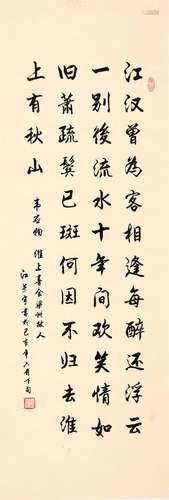 江汉曾為客相逢每醉还浮云
一别後流水十年间欢笑情如
旧萧疏鬓已斑何因不归去淮
上有秋山
韦应物 淮上喜会梁州故人
江 书於己亥年六月下旬